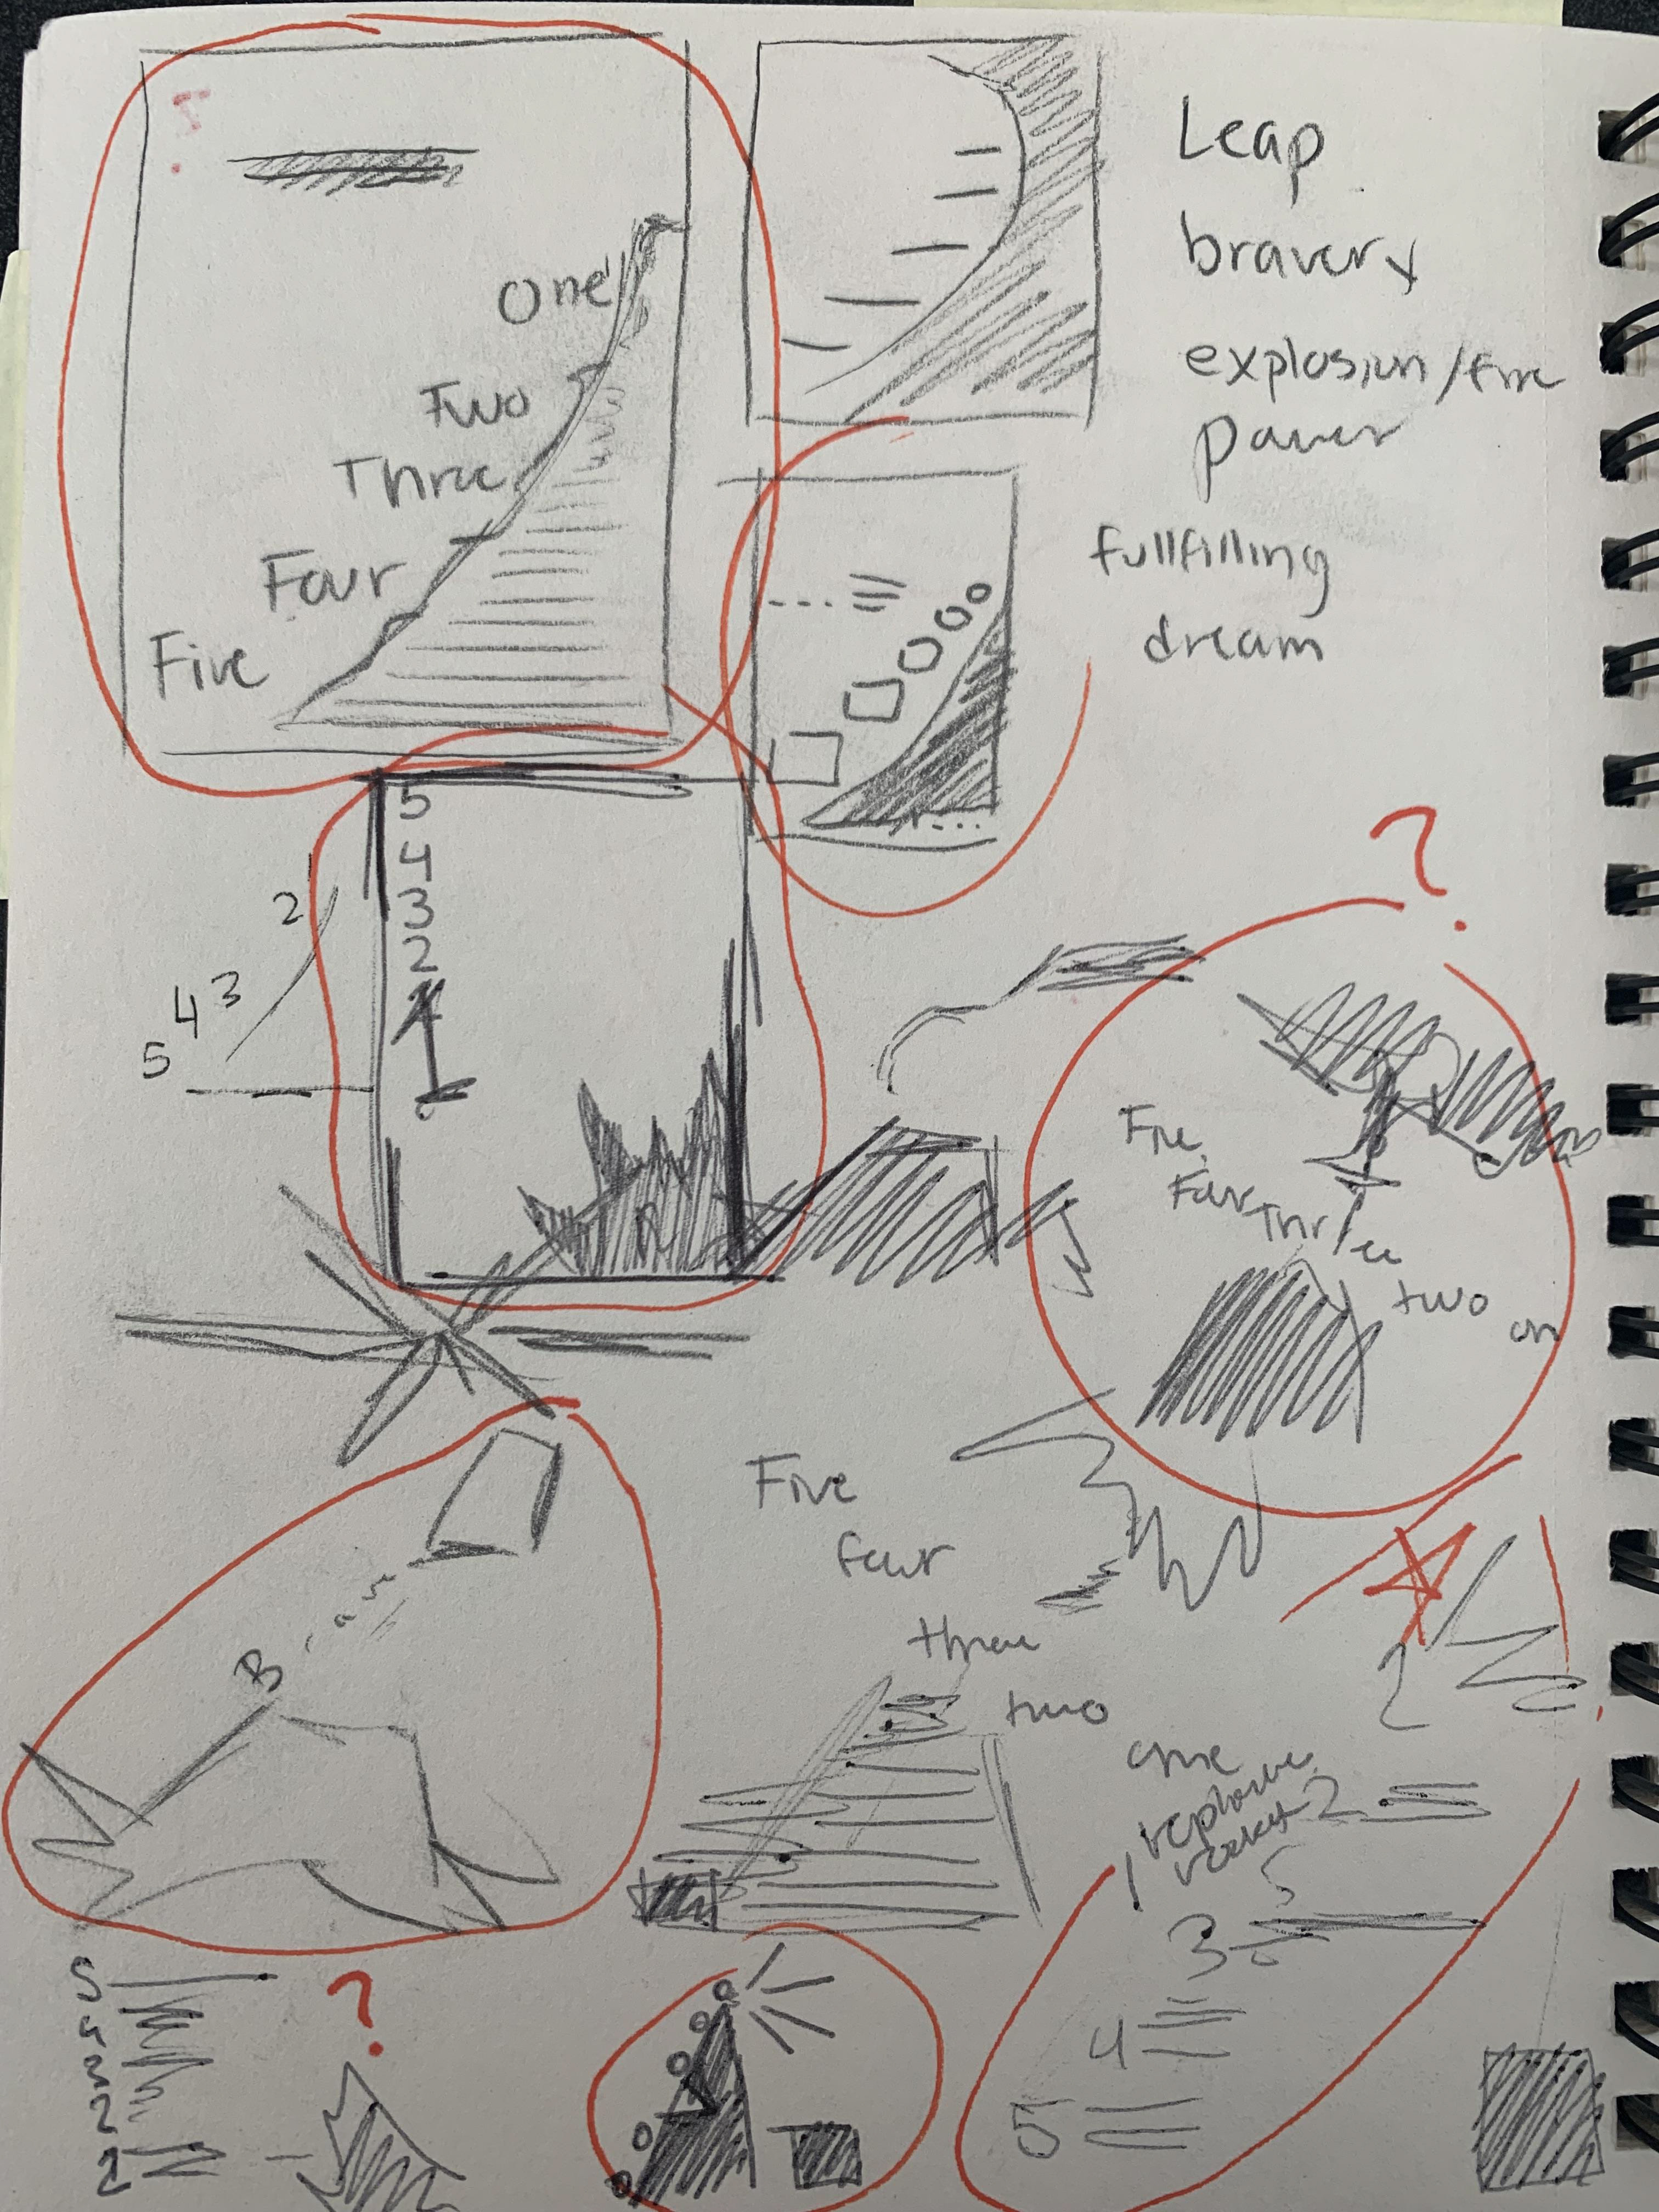 ?
One
Two
Three
Four
Five
Leap
bravery
explosion/fire
power
fullfilling
dream
5
4
3
2
1
2
3
4
5
?
Five
Four
Three
two
on
Five
four
three
two
one
replace
rocket
2
3
4
5
5
4
3
2
1
?